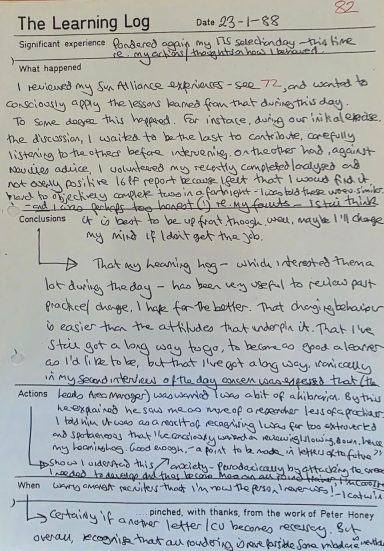 82
The Learning Log Date 23-1-88
Significant experience Pondered again my ITS selection day - this time
re. my actions/thoughts on how I behaved.
What happened
I reviewed my Sun Alliance experiences - see 72, and wanted to
consciously apply the lessons learned from that during this day.
To some degree this happened. For instance, during our initial exercise,
the discussion, I waited to be the last to contribute, carefully
listening to the others before intervening. On the other hand, against
advice, I volunteered my recently completed/analysed and
not overly positive 16PF report because I felt that I would find it
hard to objectively complete two in a fortnight - I was told these were similar.
- and I was perhaps too honest (!) re. my faults - I still think
Conclusions it is best to be up front, though. Well, maybe I'll change
my mind if I don't get the job.
That my learning log - which interested them a
lot during the day - has been very useful to review past
practice/change, I hope for the better. That changing behaviour
is easier than the attitudes that underpin it. That I've
still got a long way to go, to become as good a learner
as I'd like to be, but that I've got a long way, ironically
in my second interview of the day concern was expressed that (the
Actions Leeds Area Manager) was worried I was a bit of a librarian. By this
he explained he saw me as more of a researcher less of a practitioner
I told him it was as a result of recognising I was far too extroverted
and spontaneous that I've consciously worked on reviewing, slowing down, hence
my learning log. Good enough, - a point to be made in letters of the future??
Show I understand this anxiety - paradoxically by attacking the areas
I needed to develop and thus become more
When warns recruiters that I'm now the person I never was! - I can't win
pinched, with thanks, from the work of Peter Honey
Certainly if another letter/CV becomes necessary. But
overall, recognise that